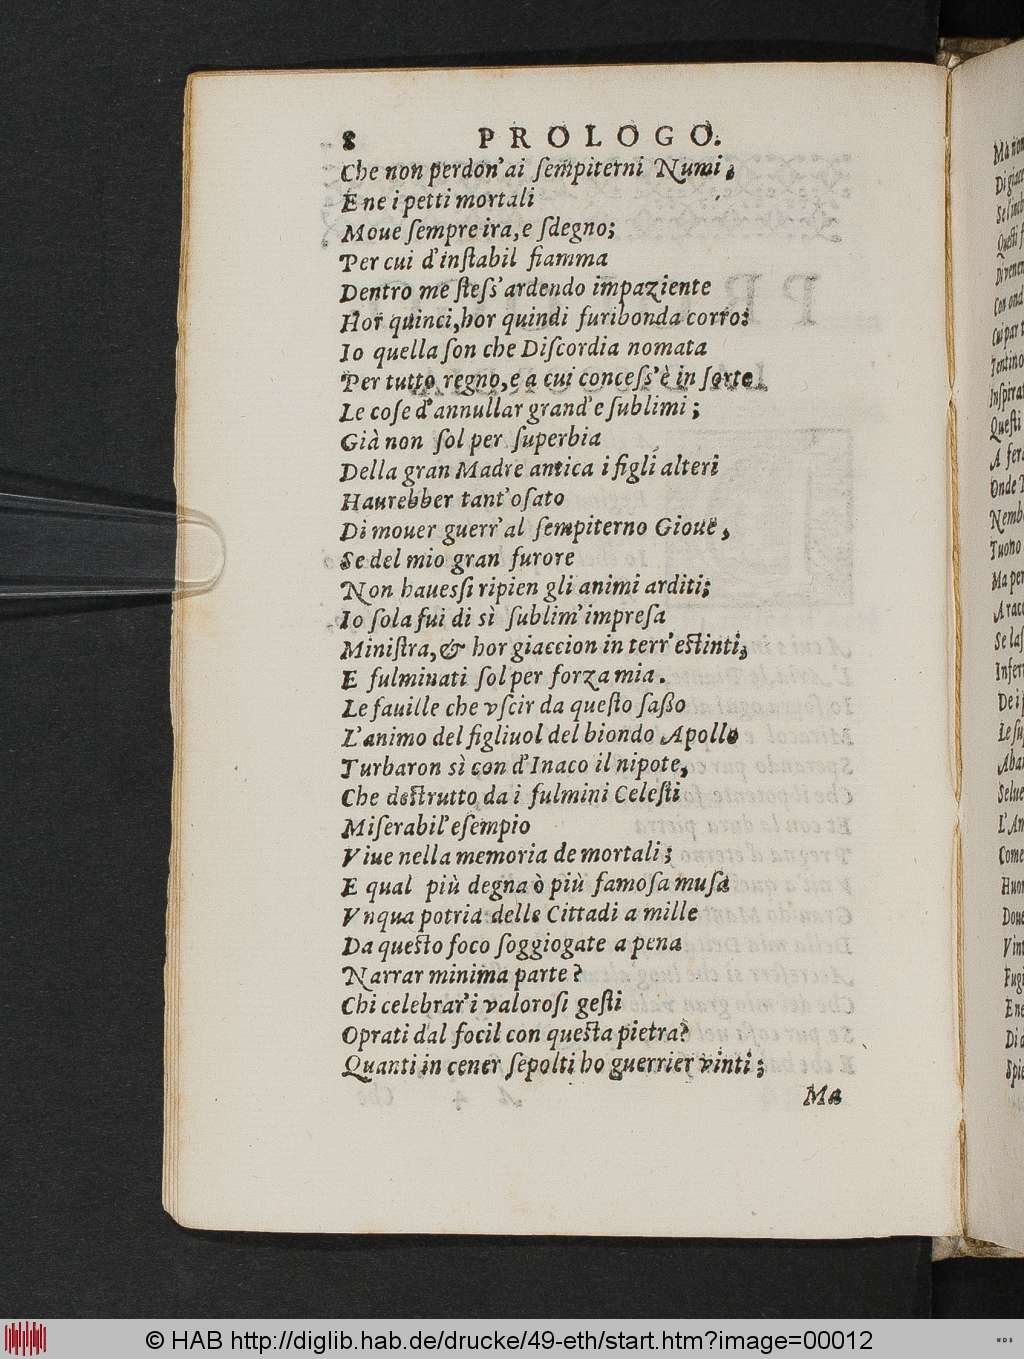 8 PROLOGO.
Che non perdon'ai ſempiterni Numi,
E ne i petti mortali
Moue ſempre ira, e ſdegno;
Per cui d'inſtabil fiamma
Dentro me ſteſſ'ardendo impaziente
Hor quinci, hor quindi furibonda corro:
Io quella ſon che Diſcordia nomata
Per tutto regno, e a cui conceſſ'è in ſorte
Le coſe d'annullar grand'e ſublimi;
Già non ſol per ſuperbia
Della gran Madre antica i figli alteri
Haurebber tant'oſato
Di mouer guerr'al ſempiterno Gioue,
Se del mio gran furore
Non haueſſi ripien gli animi arditi;
Io ſola fui di sì ſublim'impreſa
Miniſtra, & hor giaccion in terr'eſtinti,
E fulminati ſol per forza mia.
Le fauille che vſcir da queſto ſaßo
L'animo del figliuol del biondo Apollo
Turbaron sì con d'Inaco il nipote,
Che deſtrutto da i fulmini Celeſti
Miſerabil'eſempio
Viue nella memoria de mortali;
E qual più degna ò più famoſa muſa
Vnqua potria delle Cittadi a mille
Da queſto foco ſoggiogate a pena
Narrar minima parte?
Chi celebrar'i valoroſi geſti
Oprati dal focil con queſta pietra?
Quanti in cener ſepolti ho guerrier vinti;
Ma
Ma non
Di
Queſti
Con
Cui par
Queſti
A
Onde
Tuono
Ma per
Se
De i
Selue
L'
Come
Huo
Doue
Vin
E ne
Di
© HAB http://diglib.hab.de/drucke/49-eth/start.htm?image=00012
WDB